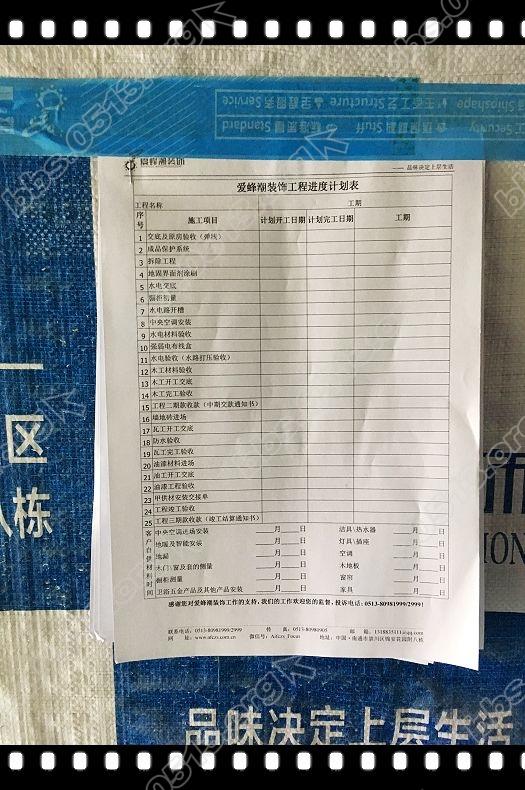 bbs.0513.org
Security
Shipshape
生态工艺 Structure
全程服务 Service
环保辅料 Stuff
标准质量 Standard
爱蜂潮装饰
—— 品味决定上层生活
爱蜂潮装饰工程进度计划表
工程名称 工期
序号 施工项目 计划开工日期 计划完工日期 工期
1 交底及原房验收（弹线）
2 成品保护系统
3 拆除工程
4 地固界面剂涂刷
5 水电交底
6 橱柜初量
7 水电路开槽
8 中央空调安装
9 水电材料验收
10 强弱电布线盒
11 水电验收（水路打压验收）
12 木工材料验收
13 木工开工交底
14 木工完工验收
15 工程二期款收款（中期交款通知书）
16 墙地砖进场
17 瓦工开工交底
18 防水验收
19 瓦工完工验收
20 油漆材料进场
21 油工开工交底
22 油漆工程验收
23 甲供材安装交接单
24 工程竣工验收
25 工程三期款收款（竣工结算通知书）
客户自供材料时间
中央空调进场安装 月 日 洁具\热水器 月 日
地暖及智能安装 月 日 灯具\插座 月 日
地漏 月 日 空调 月 日
木门\窗及套的测量 月 日 木地板 月 日
橱柜测量 月 日 窗帘 月 日
卫浴五金产品及其他产品安装 月 日 家具 月 日
感谢您对爱蜂潮装饰工作的支持，我们的工作欢迎您的监督，投诉电话:0513-80981999/2999!
联系电话：0513-80981999/2999 传 真：0513-80981905 邮 箱:
网址：www.afczs.com.cn 微信号：Aifczs_Focus 地址：中国·南通市崇川区锦安花园附八栋
区
八栋
饰
ION
品味决定上层生活